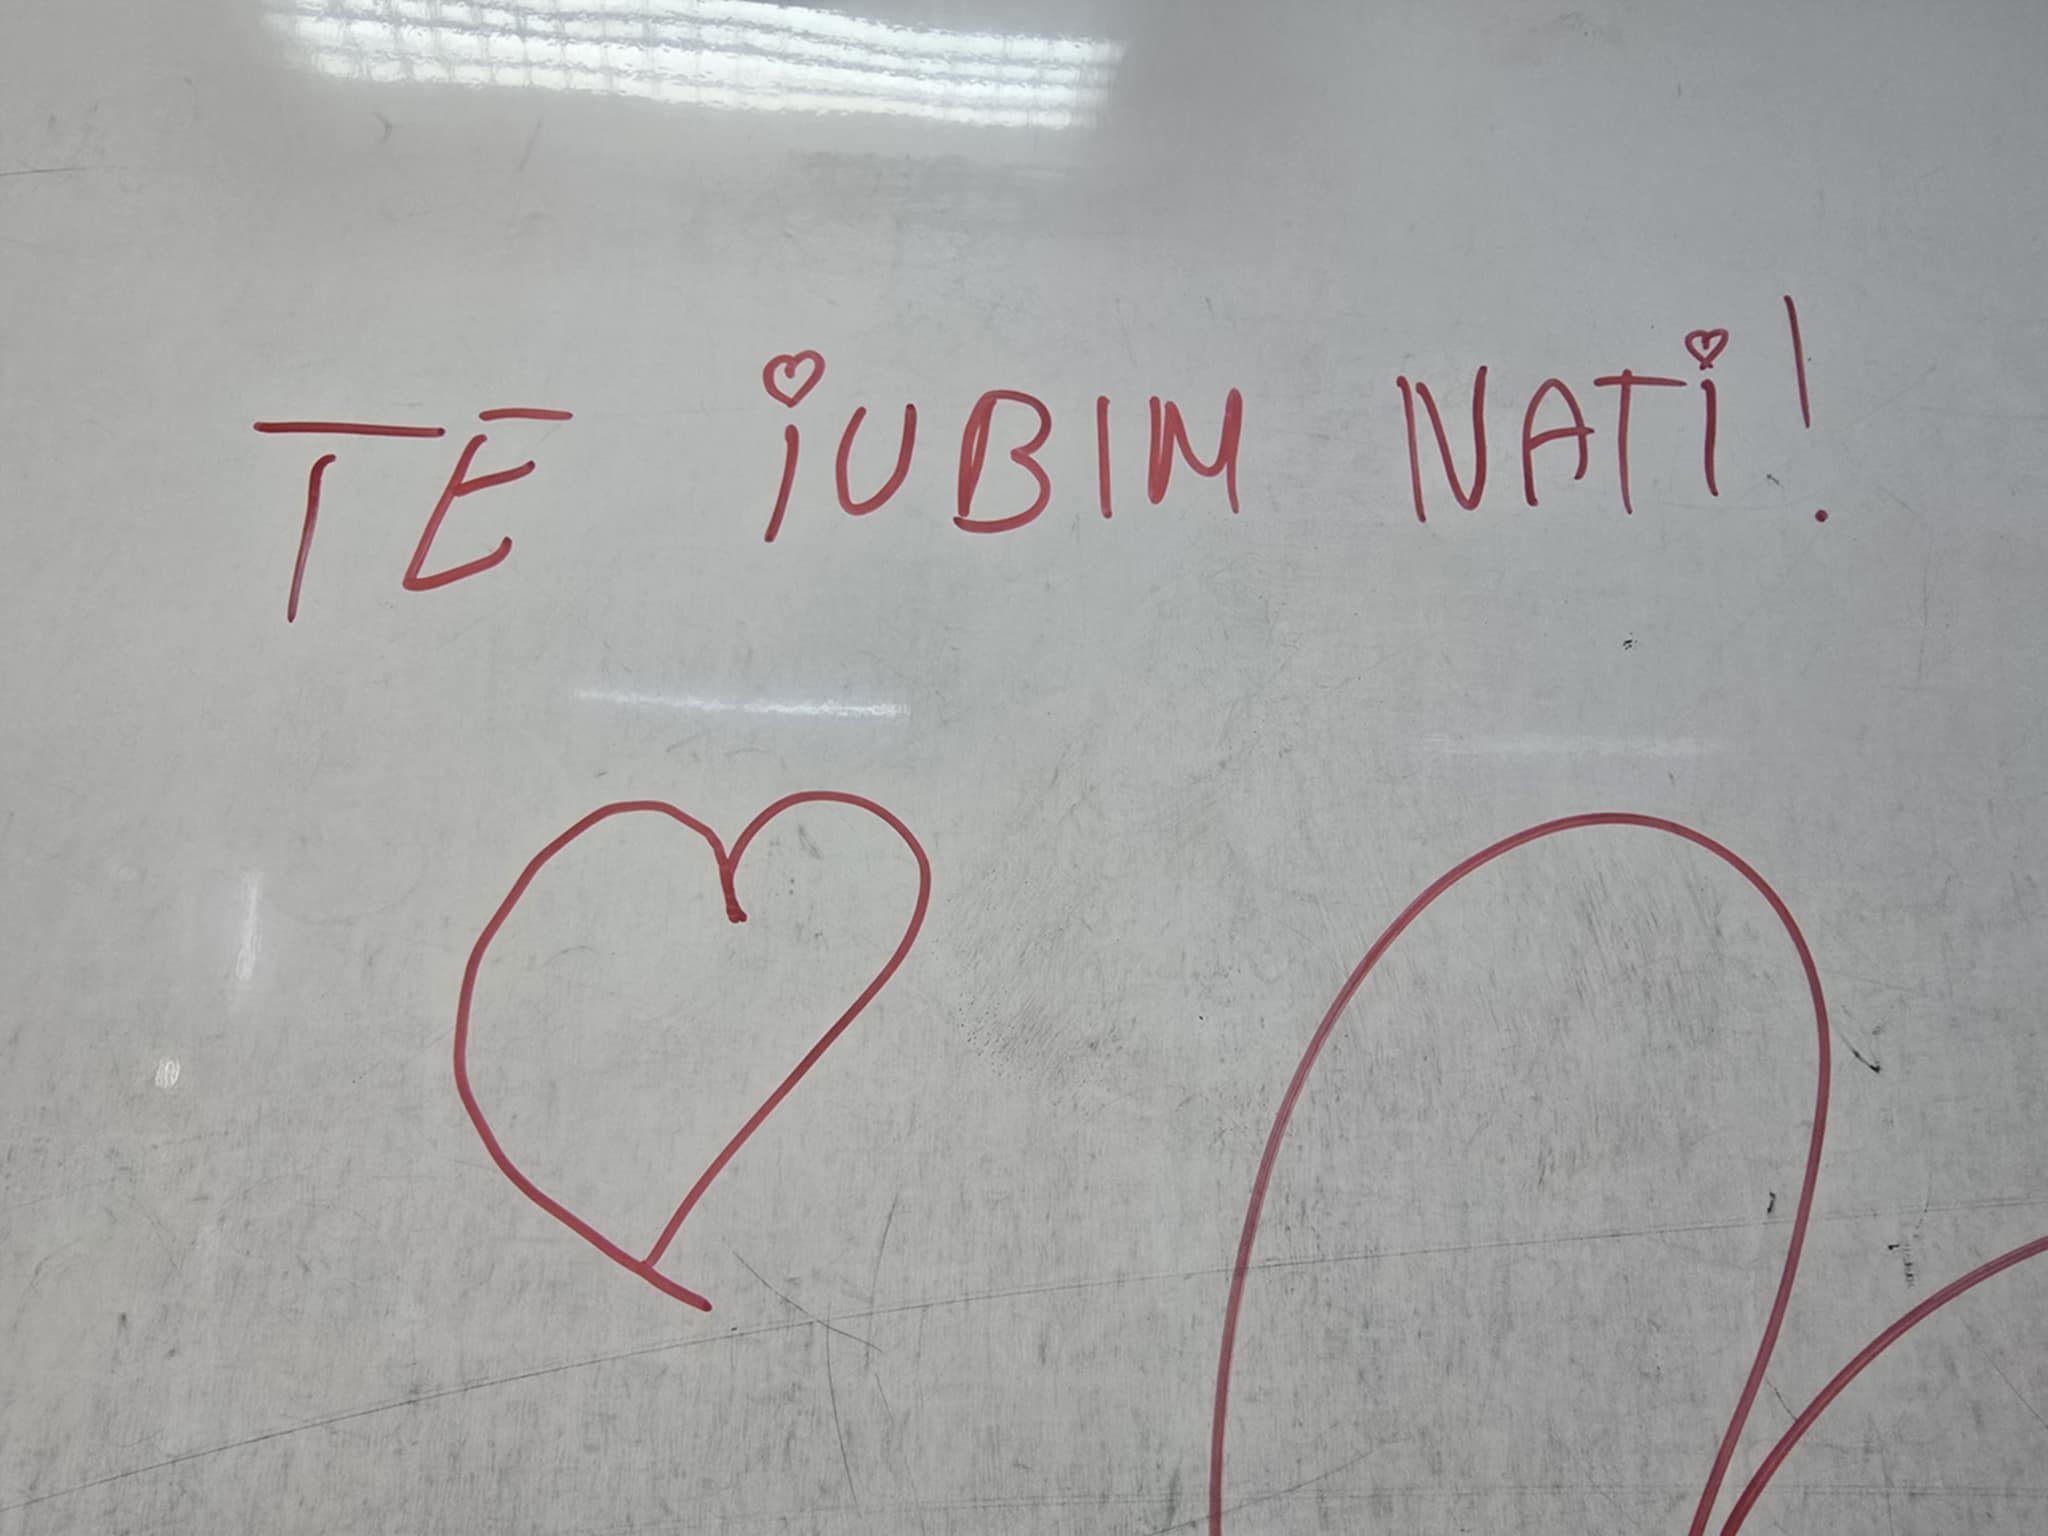 TE iUBIM NATi!